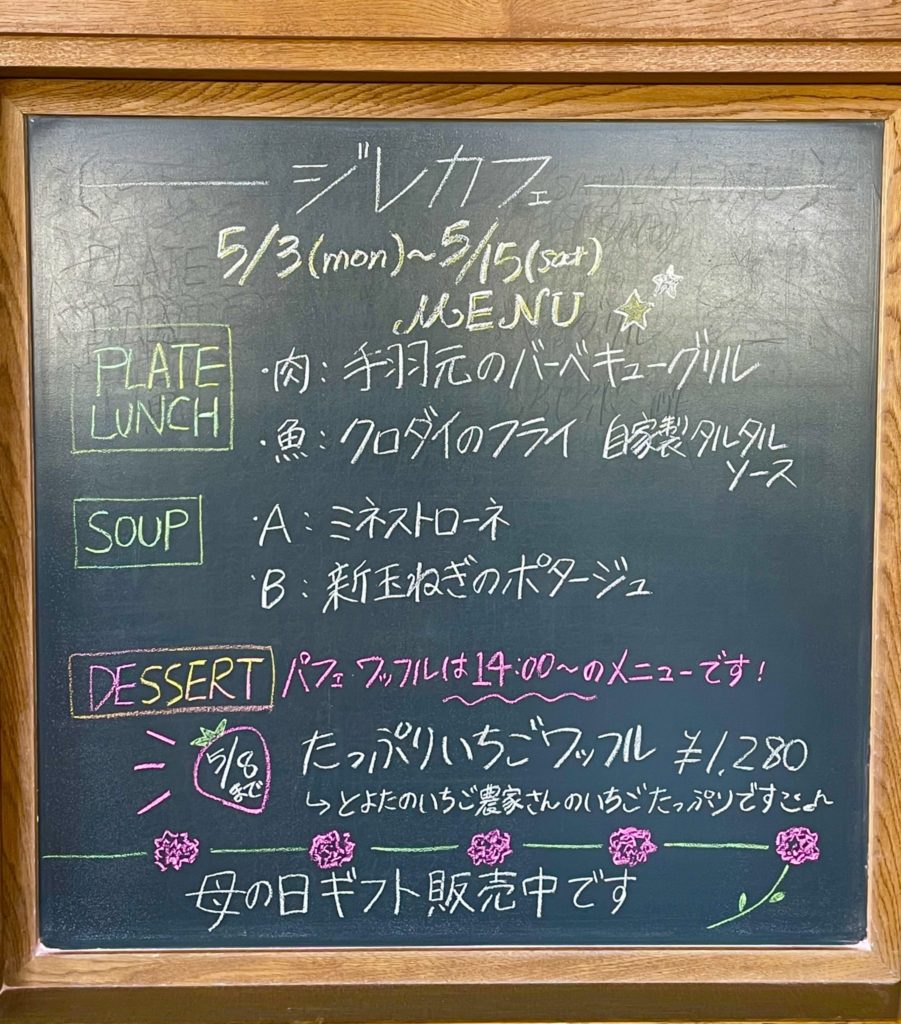 ジレカフェ
5/3(mon)～5/15(sat)
MENU
PLATE
LUNCH
・肉：手羽元のバーベキューグリル
・魚：クロダイのフライ 自家製タルタル
ソース
SOUP
・A：ミネストローネ
・B：新玉ねぎのポタージュ
DESSERT
パフェ ワッフルは14:00～のメニューです！
5/8
まで
たっぷりいちごワッフル ¥1,280
↳とよたのいちご農家さんのいちごたっぷりです
母の日ギフト販売中です